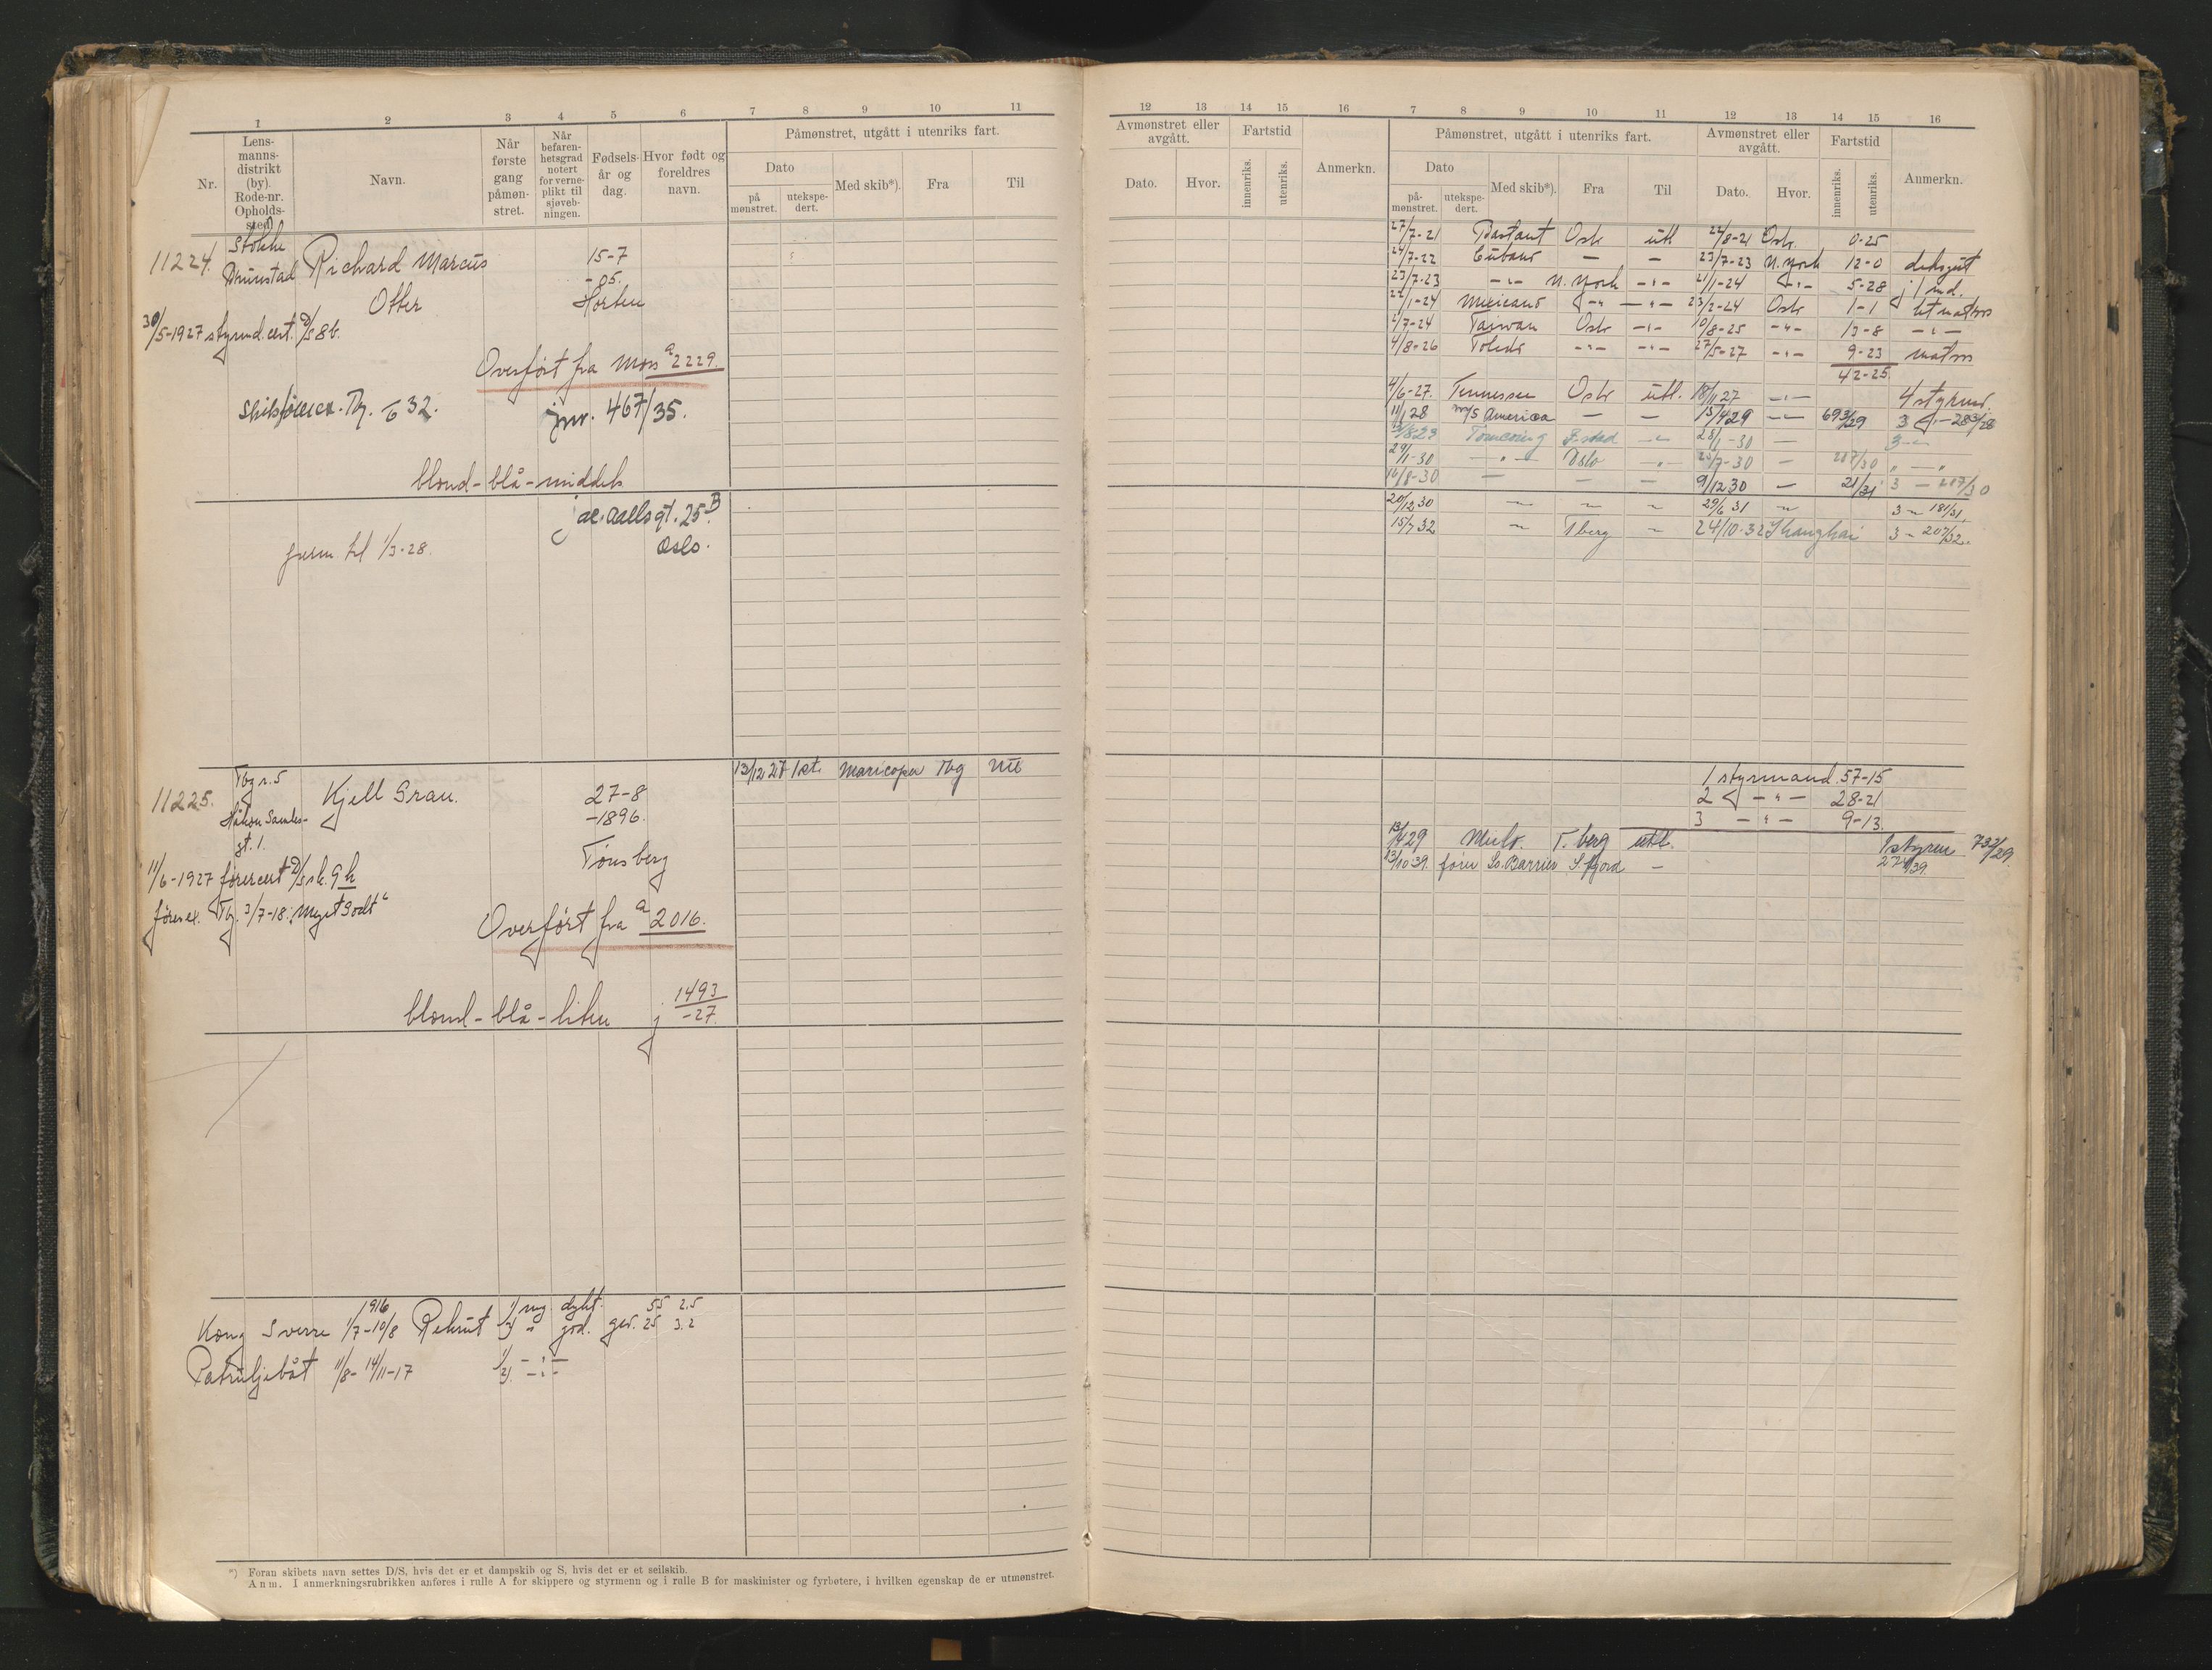 1 2 3 4 5 6 7 8 9 10 11
Nr.
Lens-
manns-
distrikt
(by).
Rode-nr.
Opholds-
sted)
Navn.
Når
første
gang
påmøn-
stret.
Når
befaren-
hetsgrad
notert
for verne-
plikt til
sjøveb-
ningen.
Fødsels-
år og
dag.
Hvor født og
foreldres
navn.
Påmønstret, utgått i utenriks fart.
Dato
på
mønstret.
utekspe-
dert.
Med skib*).
Fra
Til
11224.
Stokke
Richard Marcus
Otter
15-7
-05.
Horten
30/5-1927 styrmd. cert.
Overført fra Moss a 2229.
Tbg. 32.
jnr. 467/35.
blond - blå - middels
Jac. Aallsgt. 25 B
Oslo.
perm. til 1/3-28.
11225.
Tbg r. 5
Kjell Grau.
Håkon
gt. 1.
27-8
-1896.
Tønsberg
13/12 27 1st. Maricopa Tbg Utl
11/6-1927 førercert
førerex. Tbg. 3/7-18: Meget Godt
Overført fra a 2016.
blond - blå - liten j 1493
-27.
1916
Kong Sverre 1/7-10/8 Rekrut
Patruljebåt 11/8- 14/11-17
*) Foran skibets navn settes D/S, hvis det er et dampskib og S, hvis det er et seilskib.
Anm. I anmerkningsrubrikken anføres i rulle A for skippere og styrmenn og i rulle B for maskinister og fyrbøtere, i hvilken egenskap de er utmønstret.
12 13 14 15 16 7 8 9 10 11 12 13 14 15 16
Avmønstret eller
avgått.
Dato.
Hvor.
Fartstid
innenriks.
utenriks.
Anmerkn.
Påmønstret, utgått i utenriks fart.
Dato
på-
mønstret.
utekspe-
dert.
Med skib*).
Fra
Til
Avmønstret eller
avgått.
Dato.
Hvor.
Fartstid
innenriks.
utenriks.
Anmerkn.
27/7-21 Bastant Oslo utl 22/8-21 Oslo. 0-25
24/7-22 Cubano — — 23/7-23 N. York 12-0 deksgut
23/7-23 -"- N. York -"- 21/1-24 -"- 5-28 j/md.
22/1-24 Mexicano -"- -"- 23/2-24 Oslo 1-1 letmatros
2/7-24 Taiwan Oslo -"- 10/8-25 -"- 13-8 -"-
4/8-26 Toledo -"- -"- 27/5-27 -"- 9-23 matros
42-25
4/6-27. Tennessee Oslo utl. 18/1 27 -"- 4 styrmd.
11/1 28 M/S America — — 15/4 29 -"- 693/29
F.stad 28/1-30 —
29/1-30 -"- Oslo -"- -30 — 207/30
16/8-30 — — — 9/12 30 — 21/31 3 — 207/30
20/12 30 29/6 31 3 - 181/31
15/7 32 T berg 24/10-32 Shanghai 3 - 207/32.
1 styrmand 57-15
2 -"- 28-21
3 -"- 9-13.
13/4 29 T. berg utl. 1 styrm 733/29.
13/10 39. fører So. Barrier S. fjord —